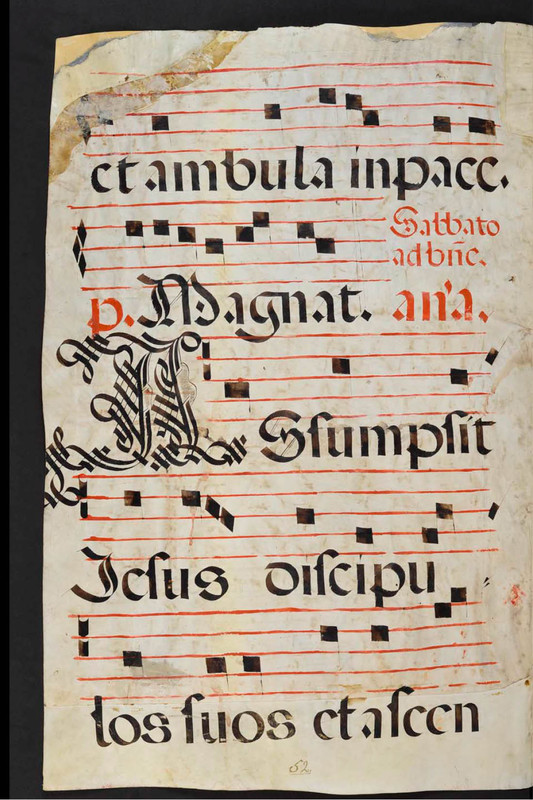 et ambula in pace.
Sabbato
ad bñe.
p. Magnat. an̄a.
ASsumpsit
Jesus discipu
los suos et ascen
52